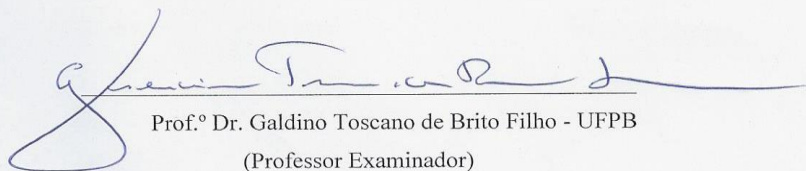 Prof.º Dr. Galdino Toscano de Brito Filho - UFPB
(Professor Examinador)